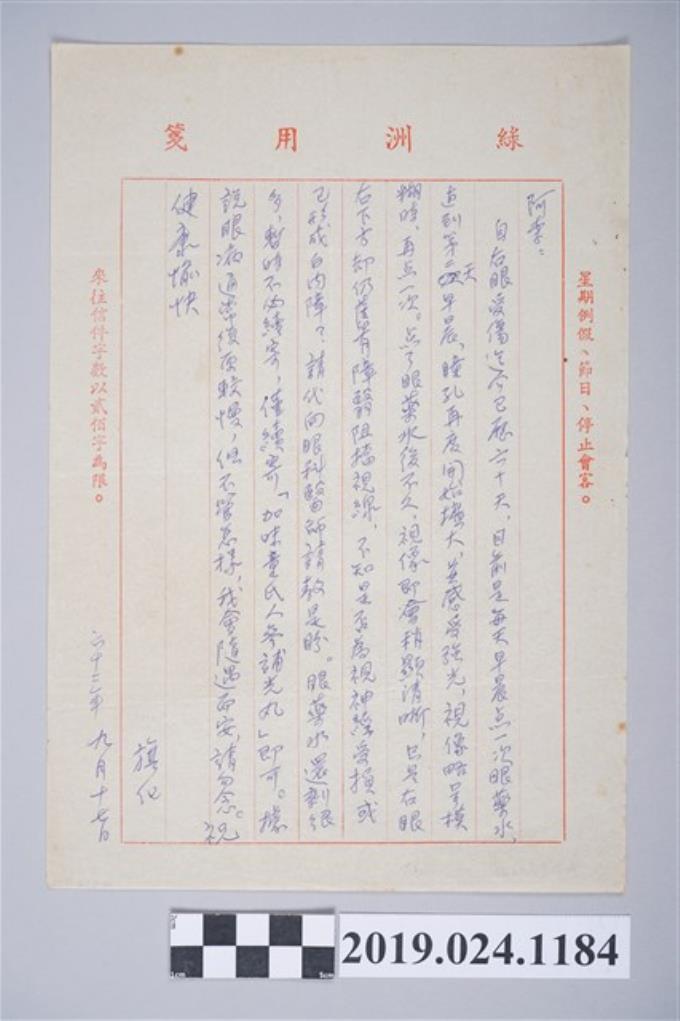 綠洲用箋
星期例假、節日、停止會客。
阿李:
自右眼受傷迄今已歷六十天,目前是每天早晨点一次眼藥水,
直到第二天早晨,瞳孔再度開始擴大,並感受强光,視像略呈模
糊時,再点一次。点了眼藥水後不久,視像即會稍顯清晰,只是右眼
右下方却仍舊有障翳阻擋視線,不知是否為視神經受損或
已形成白內障了?請代向眼科醫師請教是盼。眼藥水還剩很
多,暫時不必續寄,僅續寄「加味董氏人參補光丸」即可。據
說眼病通常復原較慢,但不管怎樣,我會隨遇而安,請勿念。祝
健康愉快
旗化
六十三年九月十七日
來往信件字數以貳佰字為限。
2019.024.1184